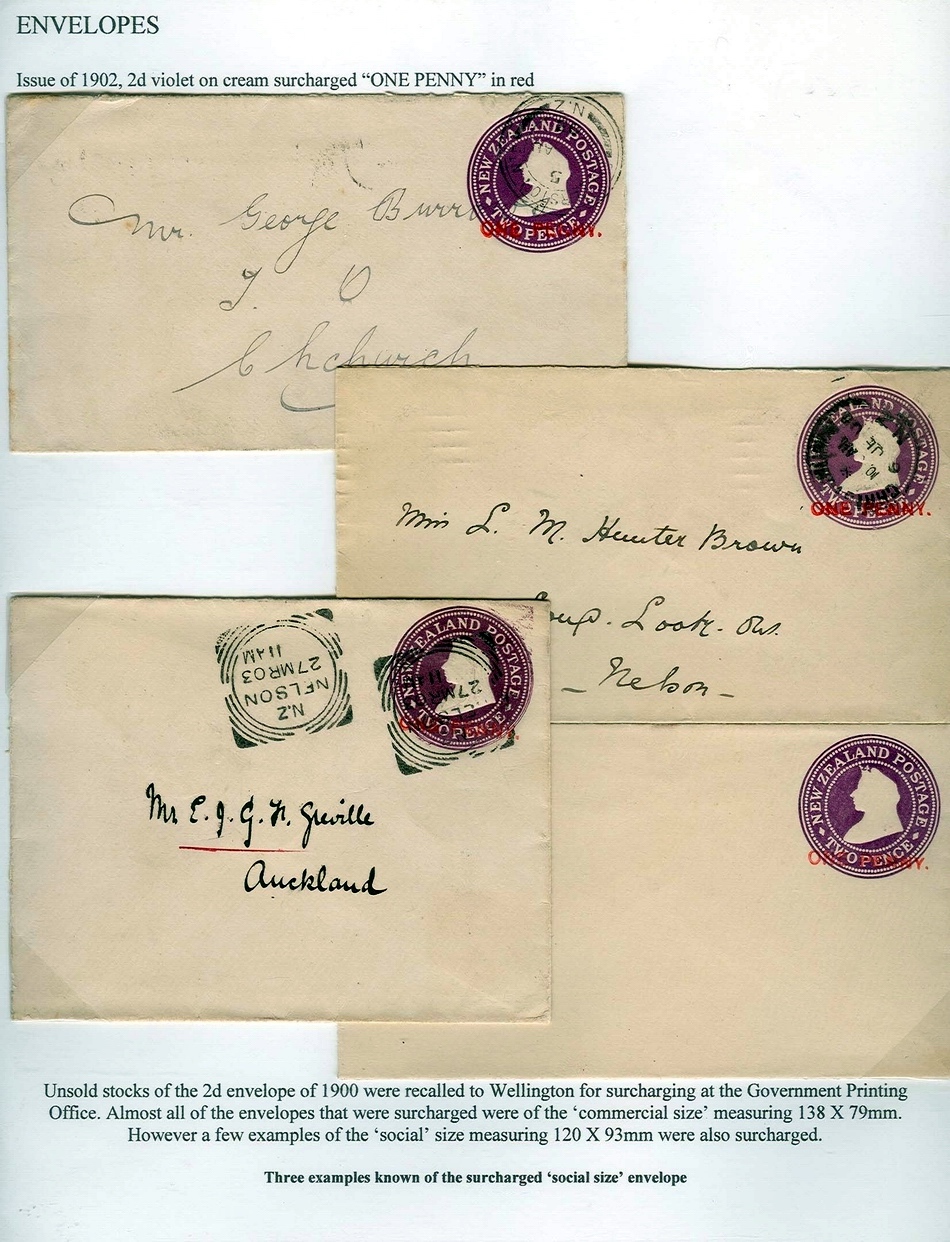 ENVELOPES
Issue of 1902, 2d violet on cream surcharged “ONE PENNY” in red
N.Z
NEW ZEALAND POSTAGE
5
TWO PENCE
ONE PENNY.
Mr. George
Chchurch
ZEALAND POSTAGE
ONE PENNY.
Miss L. M. Hunter Brown
Nelson
11AM
27MR03
NELSON
N.Z
ZEALAND POSTAGE
27MR
TWO PENCE
Mr E. J. G. H. Greville
Auckland
NEW ZEALAND POSTAGE
TWO PENCE
ONE PENNY.
Unsold stocks of the 2d envelope of 1900 were recalled to Wellington for surcharging at the Government Printing
Office. Almost all of the envelopes that were surcharged were of the ‘commercial size’ measuring 138 X 79mm.
However a few examples of the ‘social’ size measuring 120 X 93mm were also surcharged.
Three examples known of the surcharged ‘social size’ envelope